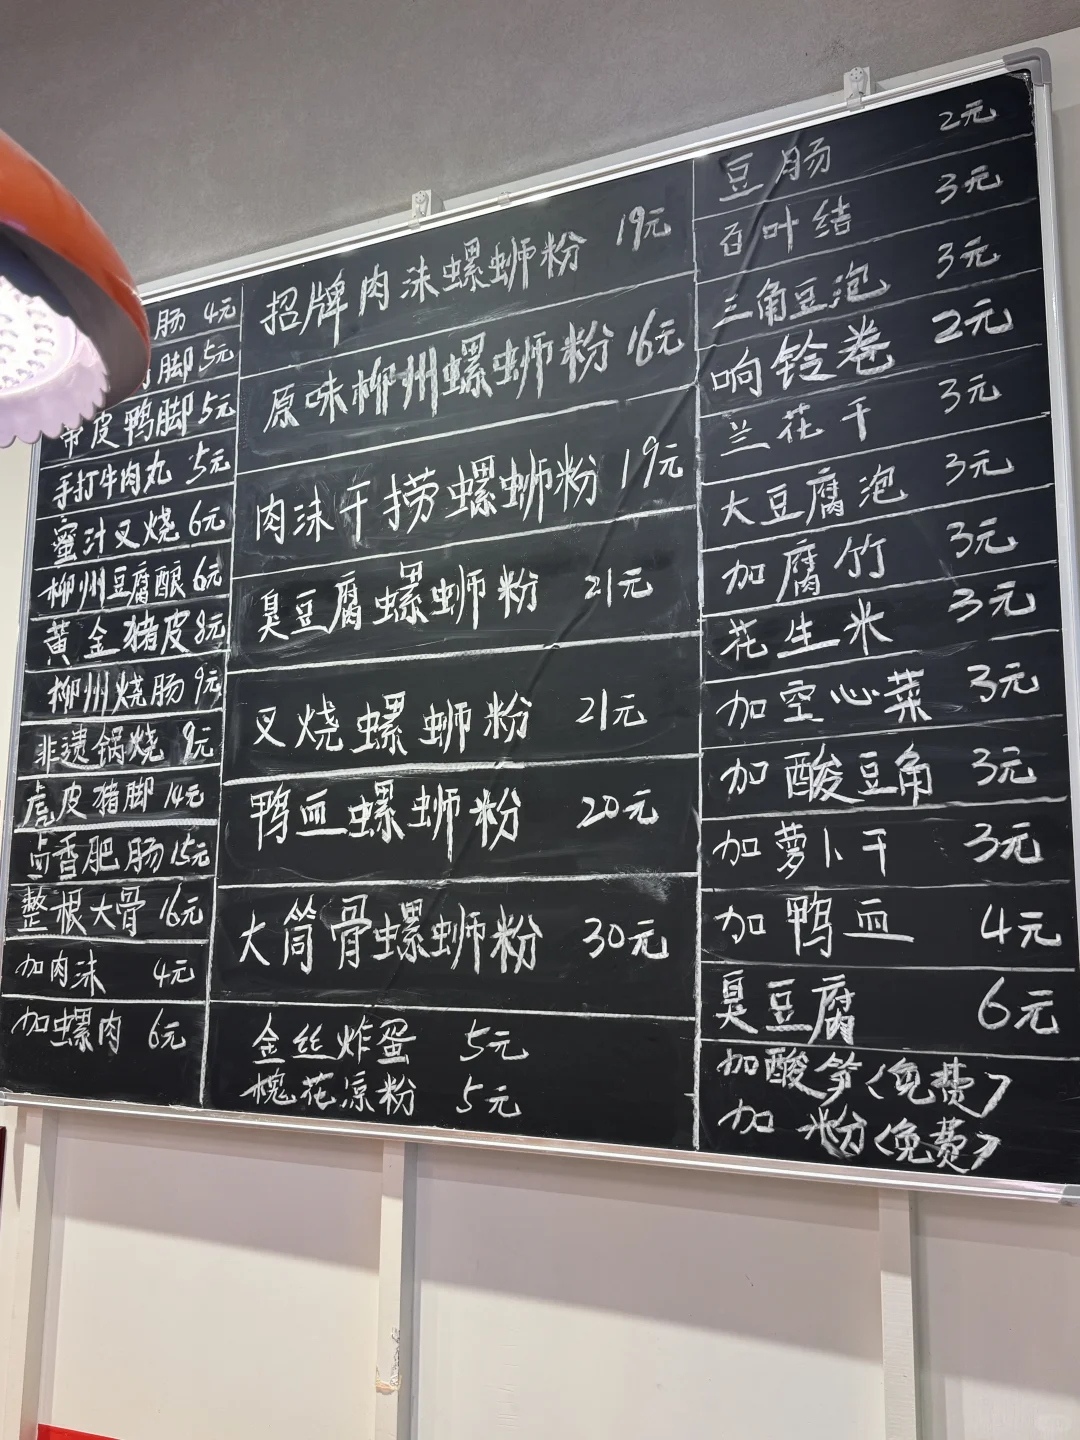 肠 4元
脚 5元
带皮鸭脚 5元
手打牛肉丸 5元
蜜汁叉烧 6元
柳州豆腐酿 6元
黄金猪皮 8元
柳州烧肠 9元
非遗锅烧 9元
虎皮猪脚 14元
卤香肥肠 15元
整根大骨 16元
加肉沫 4元
加螺肉 6元
招牌肉沫螺蛳粉 19元
原味柳州螺蛳粉 16元
肉沫干捞螺蛳粉 19元
臭豆腐螺蛳粉 21元
叉烧螺蛳粉 21元
鸭血螺蛳粉 20元
大筒骨螺蛳粉 30元
金丝炸蛋 5元
槐花凉粉 5元
豆肠 2元
百叶结 3元
三角豆泡 3元
响铃卷 2元
兰花干 3元
大豆腐泡 3元
加腐竹 3元
花生米 3元
加空心菜 3元
加酸豆角 3元
加萝卜干 3元
加鸭血 4元
臭豆腐 6元
加酸笋(免费)
加米粉(免费)